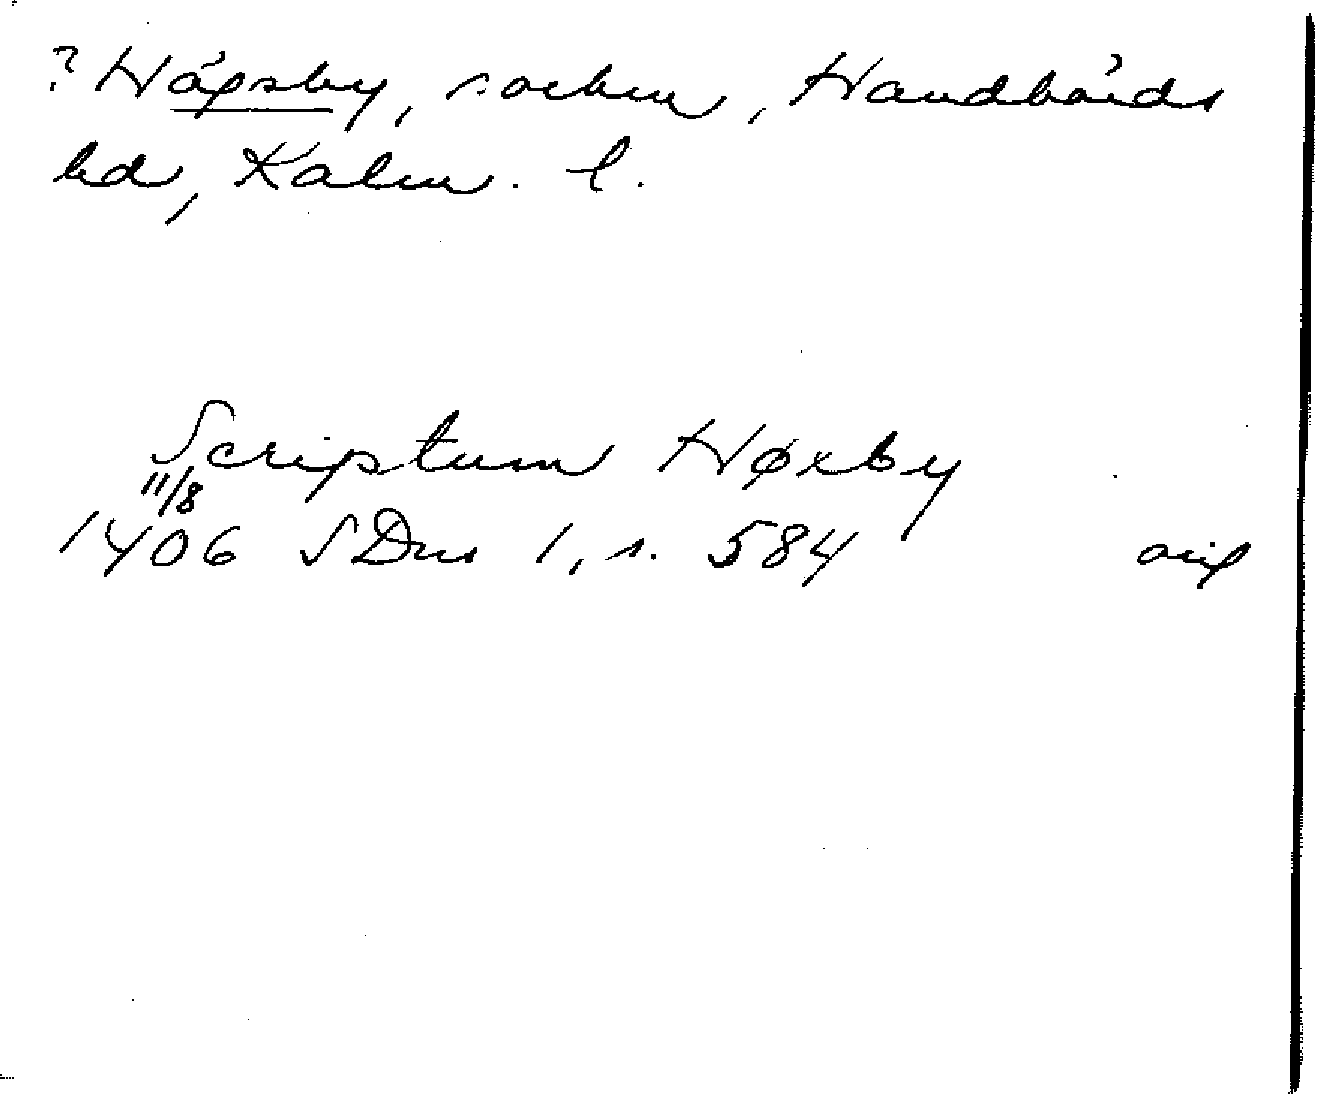 ? Högsby, socken, Handbörds
hd, Kalm. l.
Scriptum Høxby
11/8
1406 SDns 1, s. 584 orig